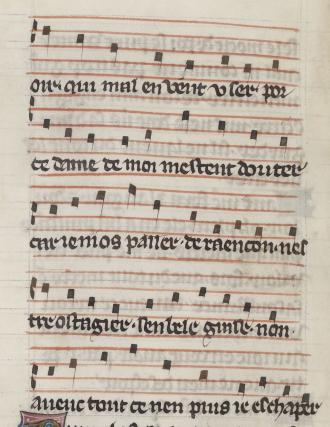 oir · qui mal en veut vser · por
ce dame de moi mesteut douter
car ie nos paller · de raencon · nes
tre ostagier · sen lele guise · non ·
aueuc tout ce nen puis ie eschaper